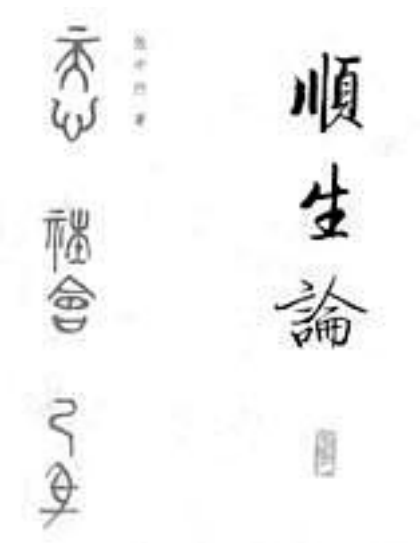 順生論
張中行 著
天心 社會 己身